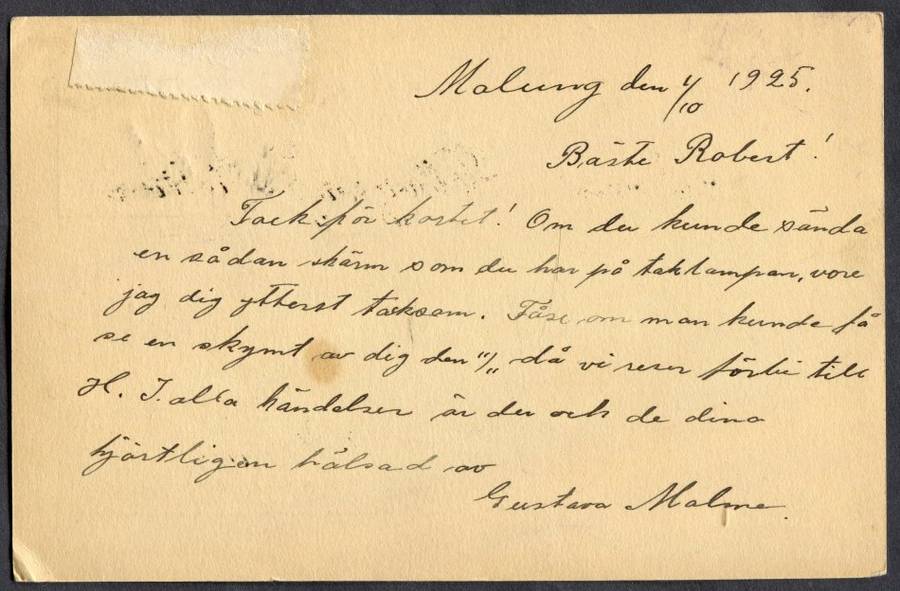 Malung den 4/10 1925.
Bäste Robert!
Tack för kortet! Om du kunde sända
en sådan skärm som du har på taklampan, vore
jag dig ytterst tacksam. Få se om man kunde få
se en skymt av dig den "/„ då vi reser förbi till
H. I alla händelser är du och de dina
hjärtligen hälsad av
Gustava Malme.